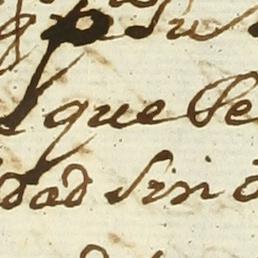 p su
que se
dad sin